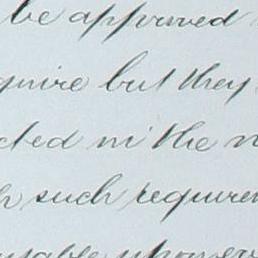 be approved
quire but they
cted in the n
h such requirem